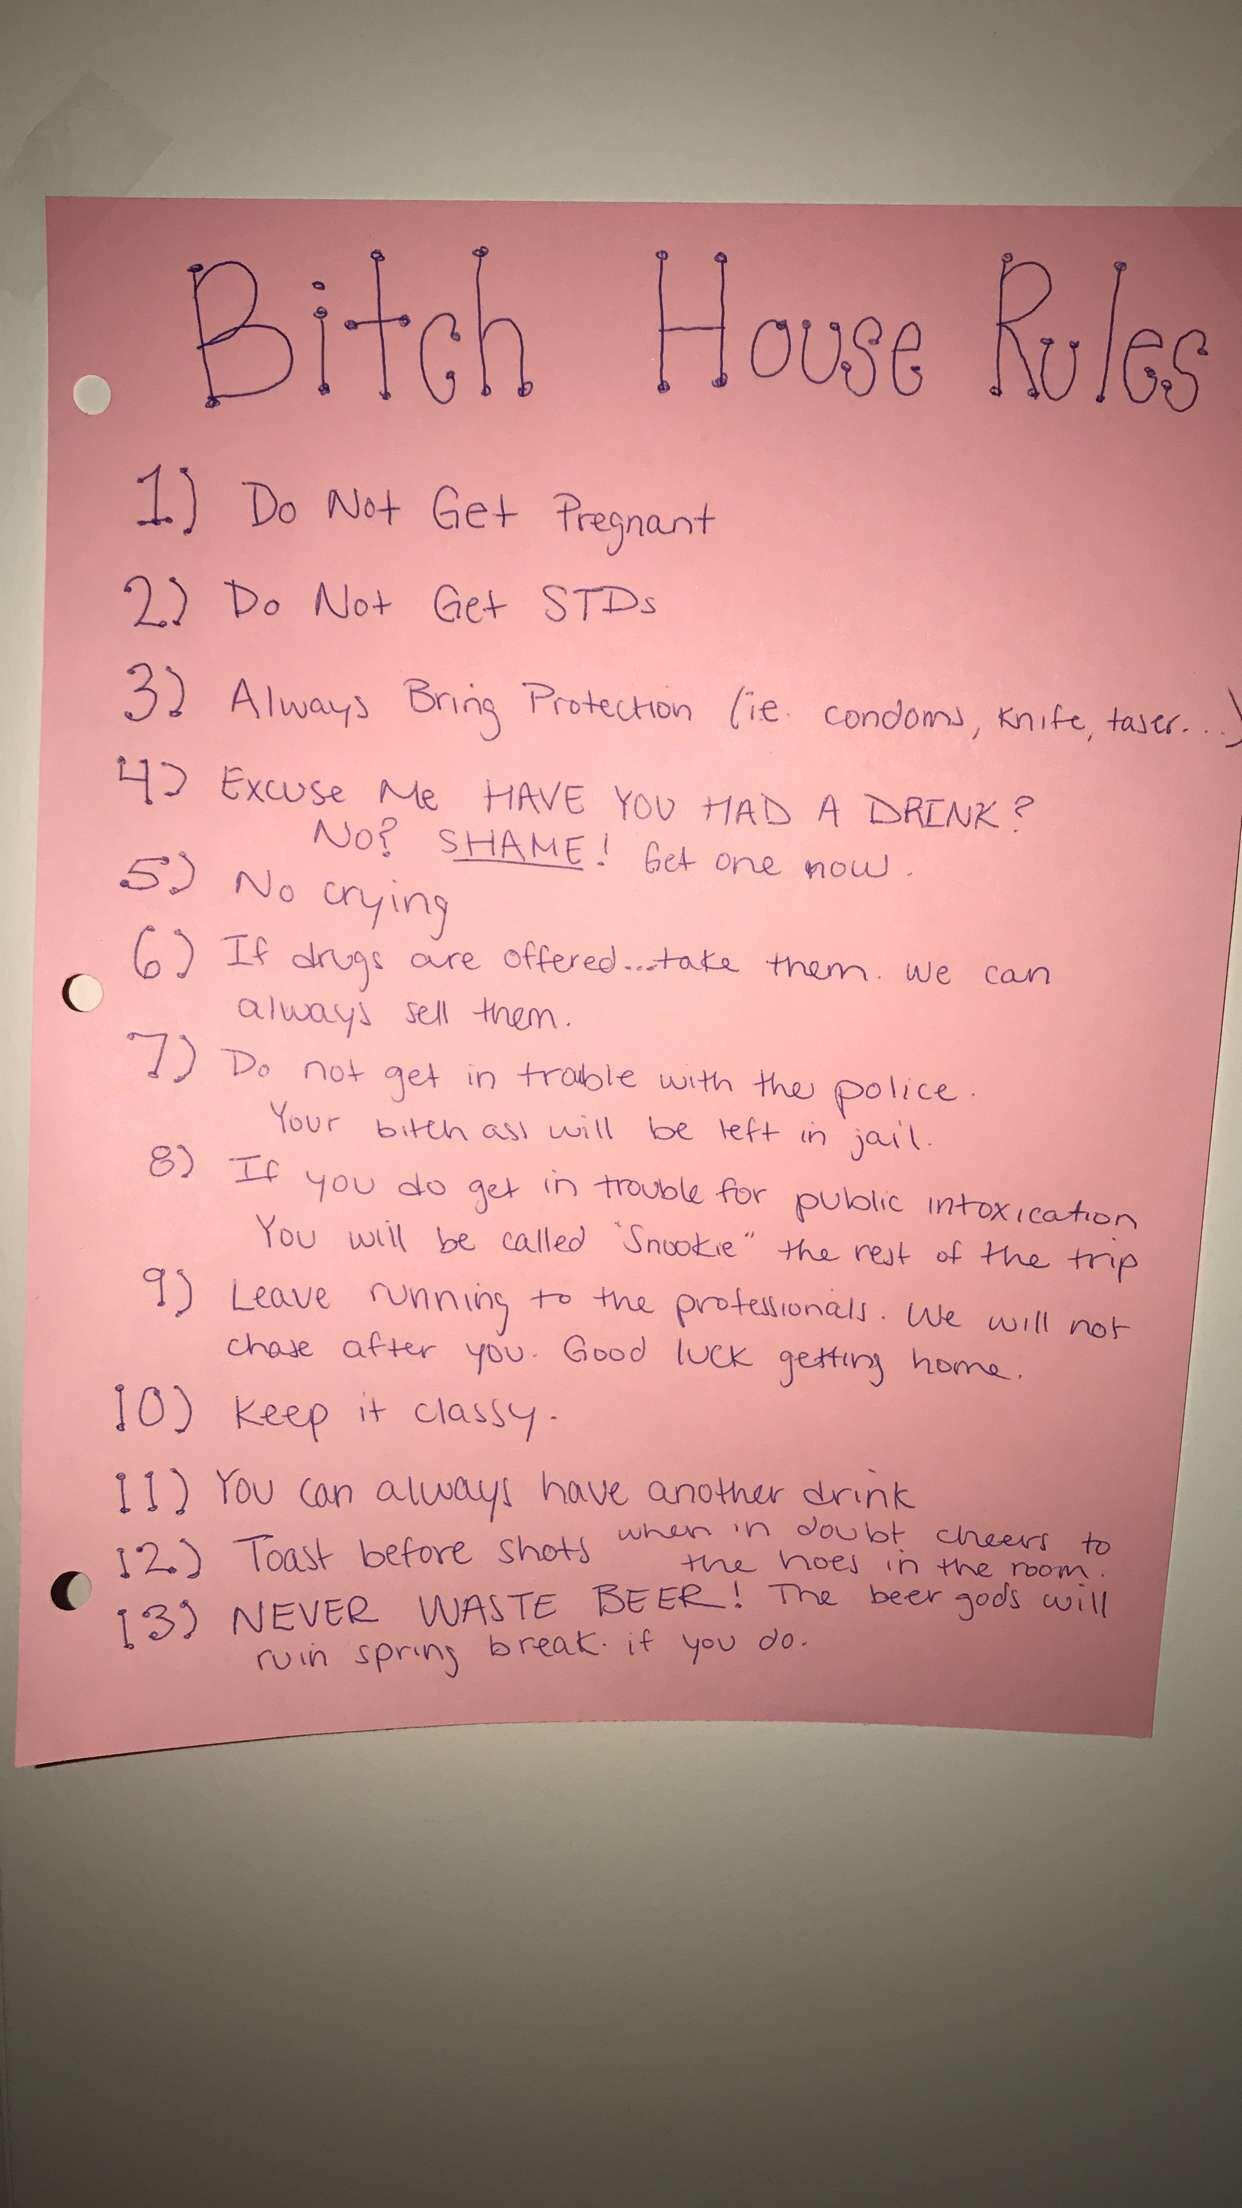 Bitch House Rules
1) Do Not Get Pregnant
2) Do Not Get STDs
3) Always Bring Protection (ie. condoms, knife, taser...)
4) Excuse Me HAVE YOU HAD A DRINK?
No? SHAME! Get one now.
5) No crying
6) If drugs are offered...take them. We can
always sell them.
7) Do not get in trouble with the police.
Your bitch ass will be left in jail.
8) If you do get in trouble for public intoxication
You will be called "Snookie" the rest of the trip
9) Leave running to the professionals. We will not
chase after you. Good luck getting home.
10) Keep it classy.
11) You can always have another drink
12) Toast before shots when in doubt cheers to
the hoes in the room.
13) NEVER WASTE BEER! The beer gods will
ruin spring break. if you do.